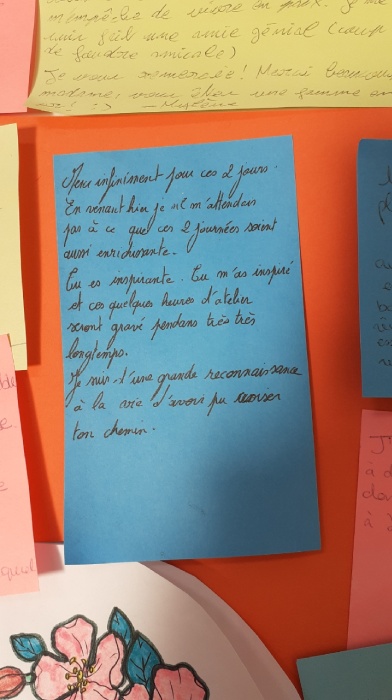 de vivre en paix. Je me
une amie génial (coup
de foudre amicale)
Je vous remercie ! Merci beaucoup
madame, vous êtes une femme en
Merci infiniment pour ces 2 jours.
En venant hier je m'attendais
pas à ce que ces 2 journées soient
aussi enrichissante.
Tu es inspirante. Tu m'as inspiré
et ces quelques heures d'atelier
seront gravé pendans très très
longtemps.
Je suis d'une grande reconnaissance
à la vie d'avoir pu croiser
ton chemin.